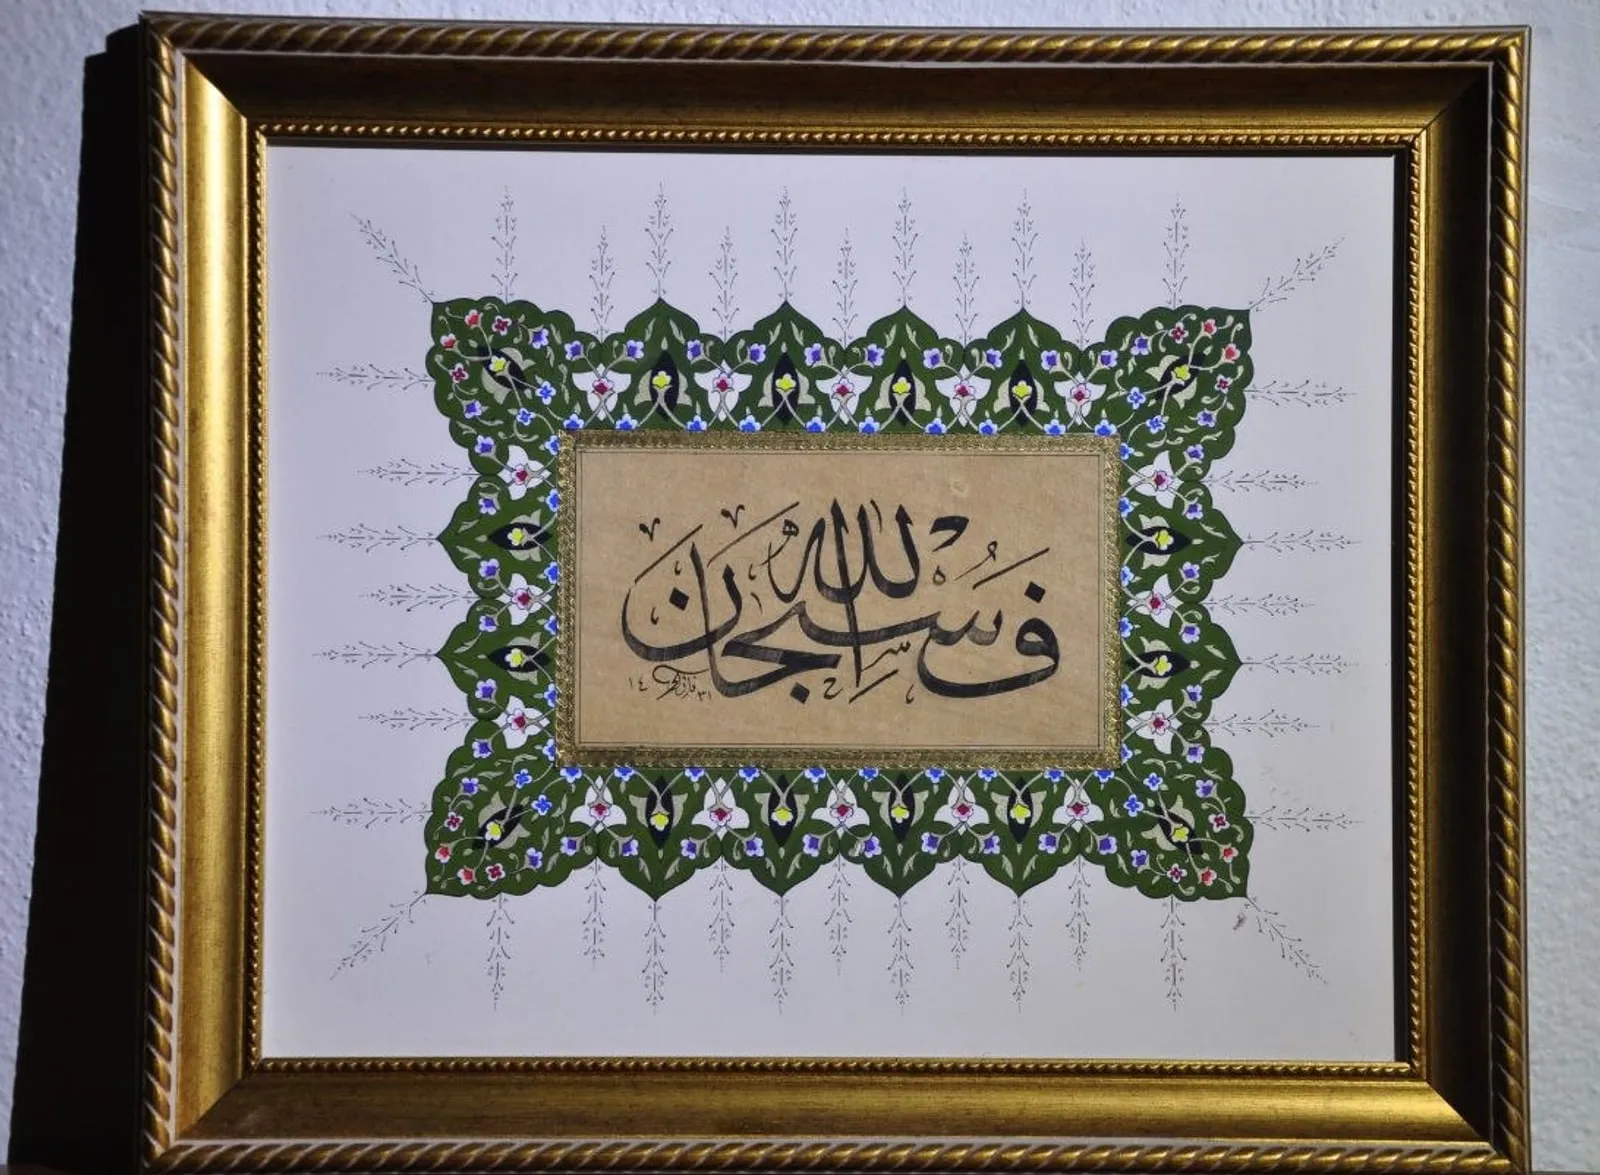 فَسُبْحَانَ اللهِ
١٤٣١